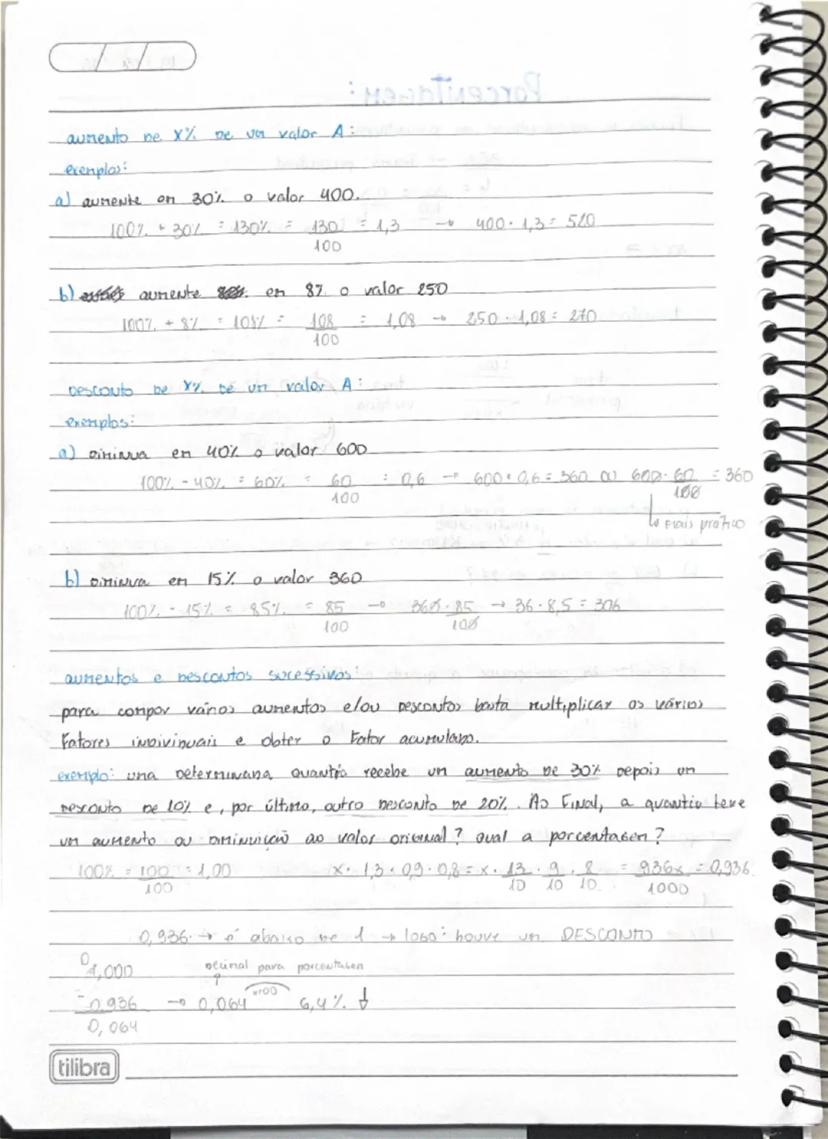 aumento de x% de um valor A:
exemplos:
a) aumente em 30% o valor 400.
100% + 30% = 130% = 130/100 = 1,3 → 400 · 1,3 = 520
b) aumente em 8% o valor 250
100% + 8% = 108% = 108/100 = 1,08 → 250 · 1,08 = 270
Desconto de x% de um valor A:
exemplos:
a) diminua em 40% o valor 600
100% - 40% = 60% = 60/100 = 0,6 → 600 · 0,6 = 360 ou 600 · 60/100 = 360
↳ mais prático
b) diminua em 15% o valor 360
100% - 15% = 85% = 85/100 → 360 · 85/100 → 36 · 8,5 = 306
aumentos e descontos sucessivos:
para compor vários aumentos e/ou descontos basta multiplicar os vários
fatores individuais e obter o fator acumulado.
exemplo: uma determinada quantia recebe um aumento de 30% depois um
desconto de 10% e, por último, outro desconto de 20%. Ao final, a quantia teve
um aumento ou diminuição ao valor original? qual a porcentagem?
100% = 100/100 = 1,00 x · 1,3 · 0,9 · 0,8 = x · 13/10 · 9/10 · 8/10 = 936x/1000 = 0,936
0,936 → é abaixo de 1 → logo: houve um DESCONTO
0
1,000 decimal para porcentagem
-0,936 → 0,064 x100 6,4% ↓
0,064
tilibra